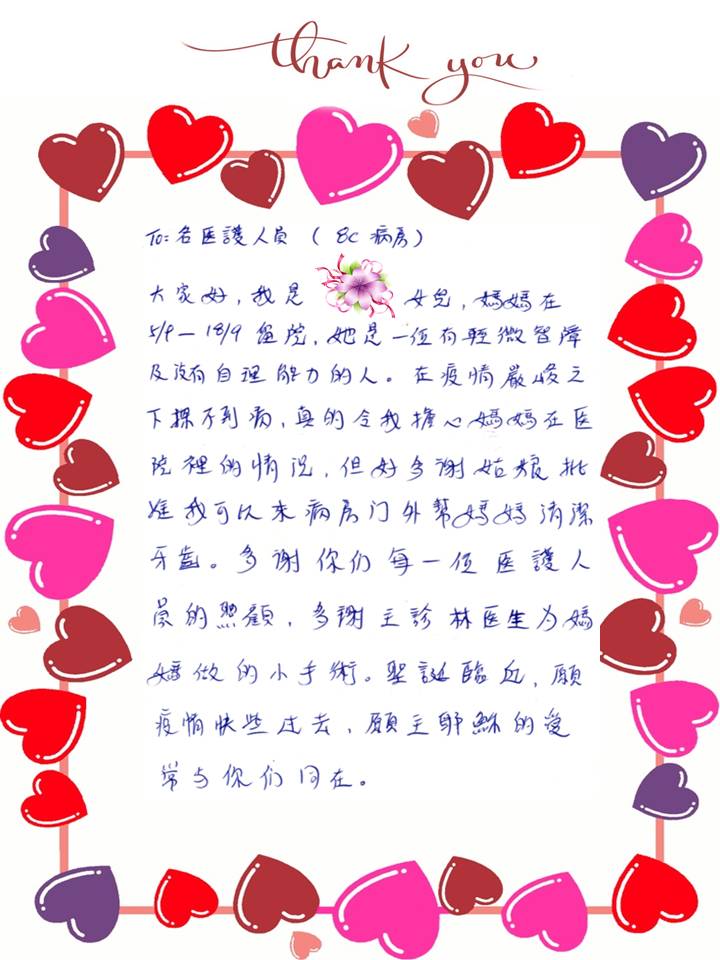 thank you
To: 各医護人員 ( 8C 病房)
大家好，我是 女兒，媽媽在
5/9 — 18/9 留院，她是一位有輕微智障
及沒有自理能力的人。在疫情嚴峻之
下探不到病，真的令我擔心媽媽在医
院裡的情況，但好多謝姑娘批
准我可以來病房门外幫媽媽清潔
牙齒。多謝你们每一位医護人
員的照顧，多謝主診林医生为媽
媽做的小手術。聖誕臨近，願
疫情快些过去，願主耶穌的愛
常与你们同在。